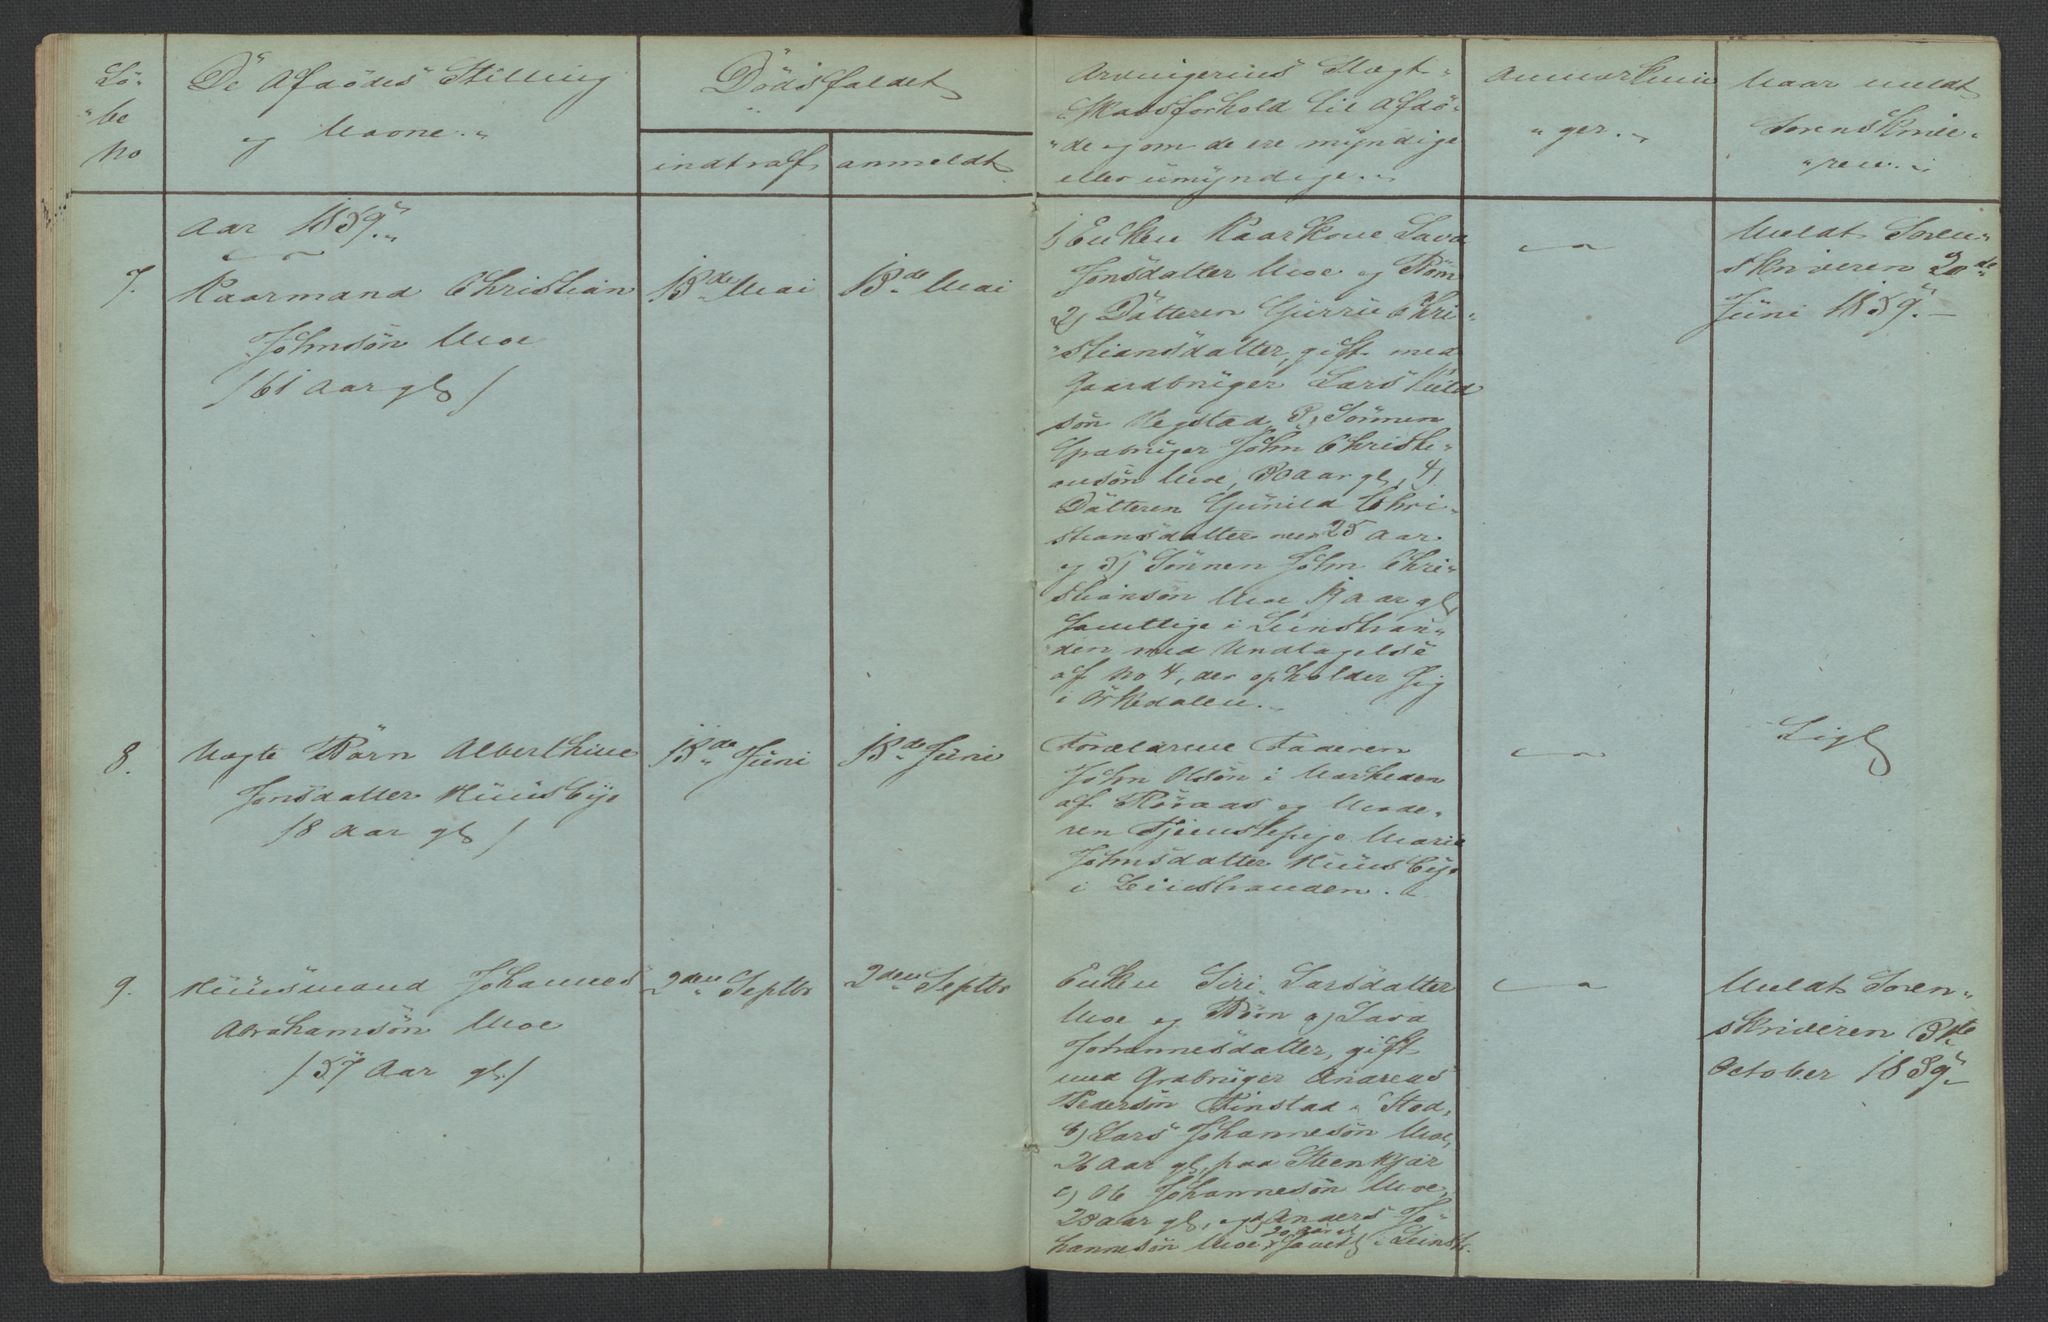 Lö-
"be
No
De Afdödes Stilling
og Navne.
Dödsfaldet
indtraf
anmeldt
Arvingernes Slægt-
skabsforhold til Afdö-
"de og om de ere myndige
eller umyndige.
Anmærknin
"ger.
Naar meldt
Sorenskrive-
"ren.
Aar 1859.
7.
Kaarmand Christian
Johnsön Moe
/61 Aar gl/
13de Mai
13de Mai
1) Enken Kaarkone Lava
Jonsdatter Moe og Börn
2) Datteren Gurru Chri-
"stiansdatter, gift med
Gaardbruger Lars
sön Hegstad, 3) Sönnen
Grabruger John Christi-
ansön Moe, Aar gl, 4)
Datteren Gunild Chri-
stiansdatter 25 Aar
og 5) Sönnen John Chri-
stiansön Moe Aar gl,
samtlige i Leinstran-
den med Undtagelse
af No 4, der opholder sig
i Örkedalen.
Meldt Soren-
skriveren 20de
Juni 1859.
8.
Uægte Barn Alberthine
Jonsdatter Huusbye
/8 Aar gl/
13de Juni
13de Juni
Forældrene Faderen
John Olsön i
af Röraas og Mode-
ren Tjenestepige Marie
Johnsdatter Huusbye
i Leinstranden.
Ligl
9.
Huusmand Johannes
Abrahamsön Moe
/57 Aar gl/
2den Septbr
2den Septbr
Enken Siri Larsdatter
Moe og Börn a) Lava
Johannesdatter, gift
med Grabruger Andreas
Pedersön Finstad i Stod,
b) Lars Johannesön Moe,
26 Aar gl, paa Steenkjær
c) Ole Johannesön Moe,
23 Aar gl, og d) Anders Jo-
20 Aar gl
hannesön Moe i Leinstr.
Meldt Soren-
skriveren 3die
October 1859